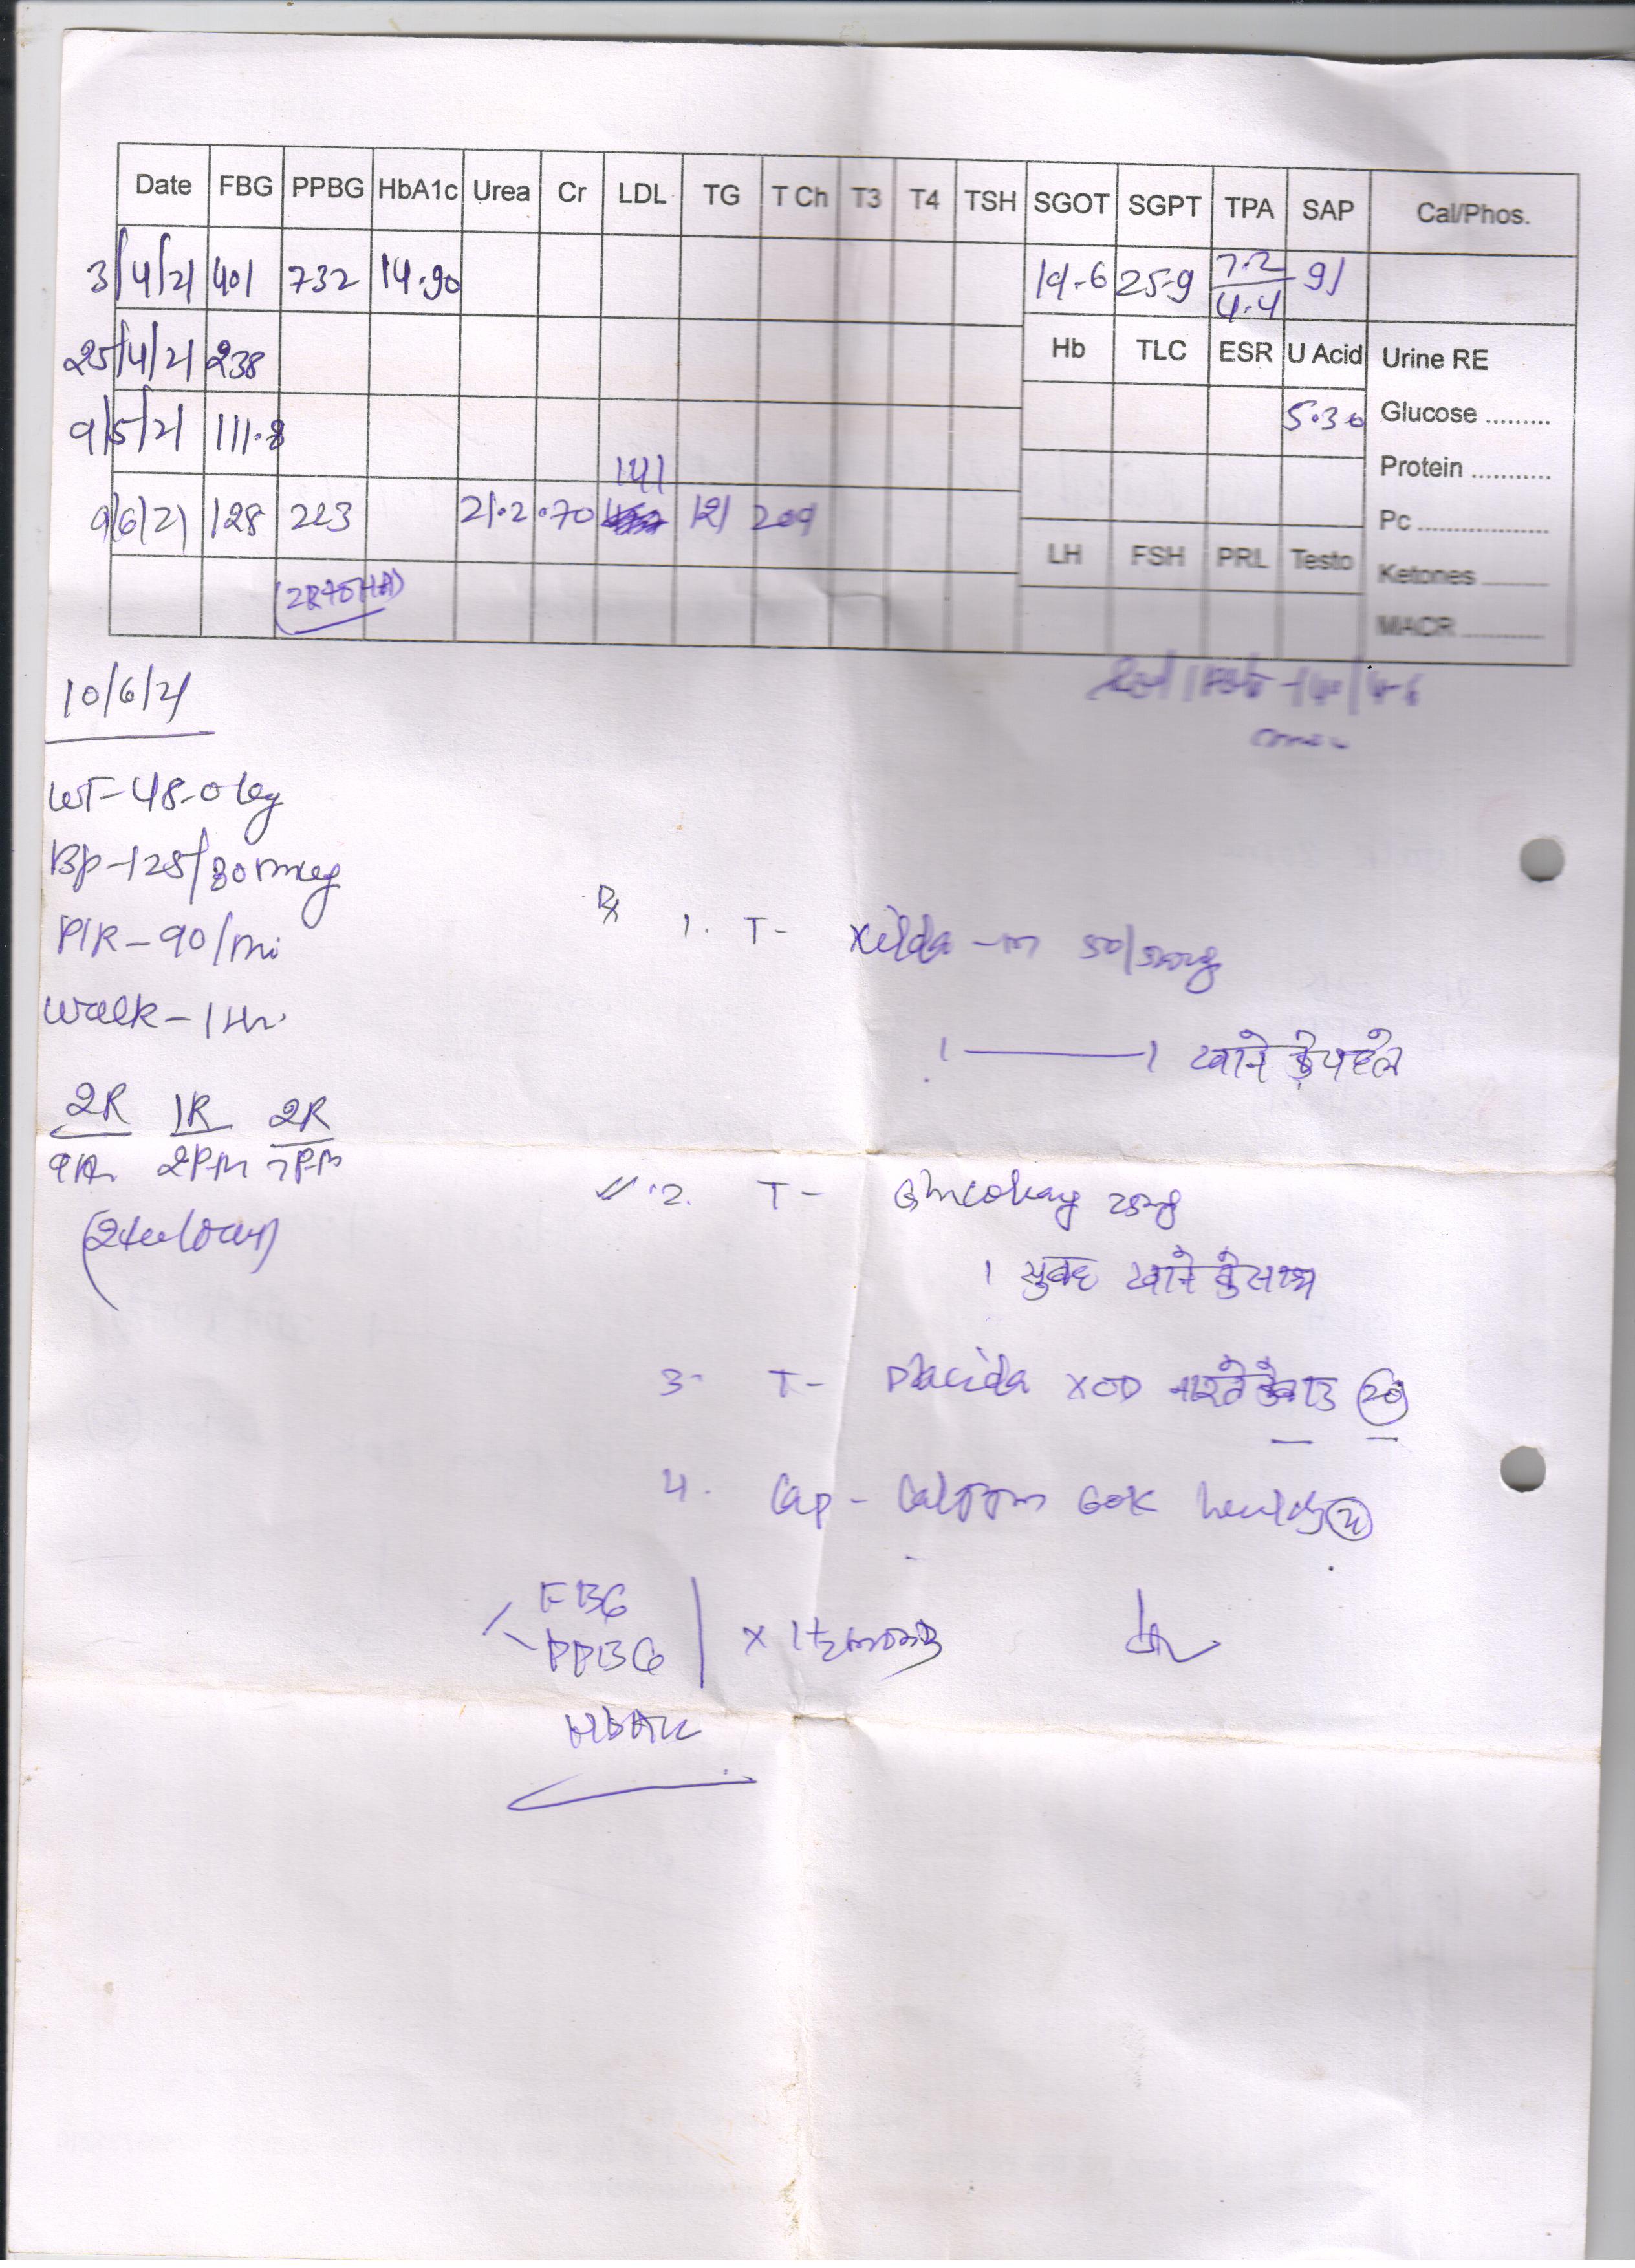 Date FBG PPBG HbA1c Urea Cr LDL TG T Ch T3 T4 TSH SGOT SGPT TPA SAP Cal/Phos.
3/4/21 401 732 14.90 19.6 25.9 7.2/4.4 91
25/4/21 238
Hb TLC ESR U Acid Urine RE
9/5/21 111.8 5.30 Glucose .........
141
Protein ...........
9/6/21 128 223 21.2 .70 121 209
Pc ..................
LH FSH PRL Testo Ketones .........
(2R+
MACR ...........
10/6/21
WT-48.0kg
BP-125/80mmHg
P/R-90/mi
Walk-1Hr
Rx 1. T- Xilda-m 50/500mg
1 — 1 खाने के पहले
2R 1R 2R
9A 2PM 7PM
2. T- 25mg
1 सुबह खाने के साथ
3. T- Placida X OD नाश्ते के बाद 20
4. Cap- 60K
FBG
PPBG x 1½
HbA1c